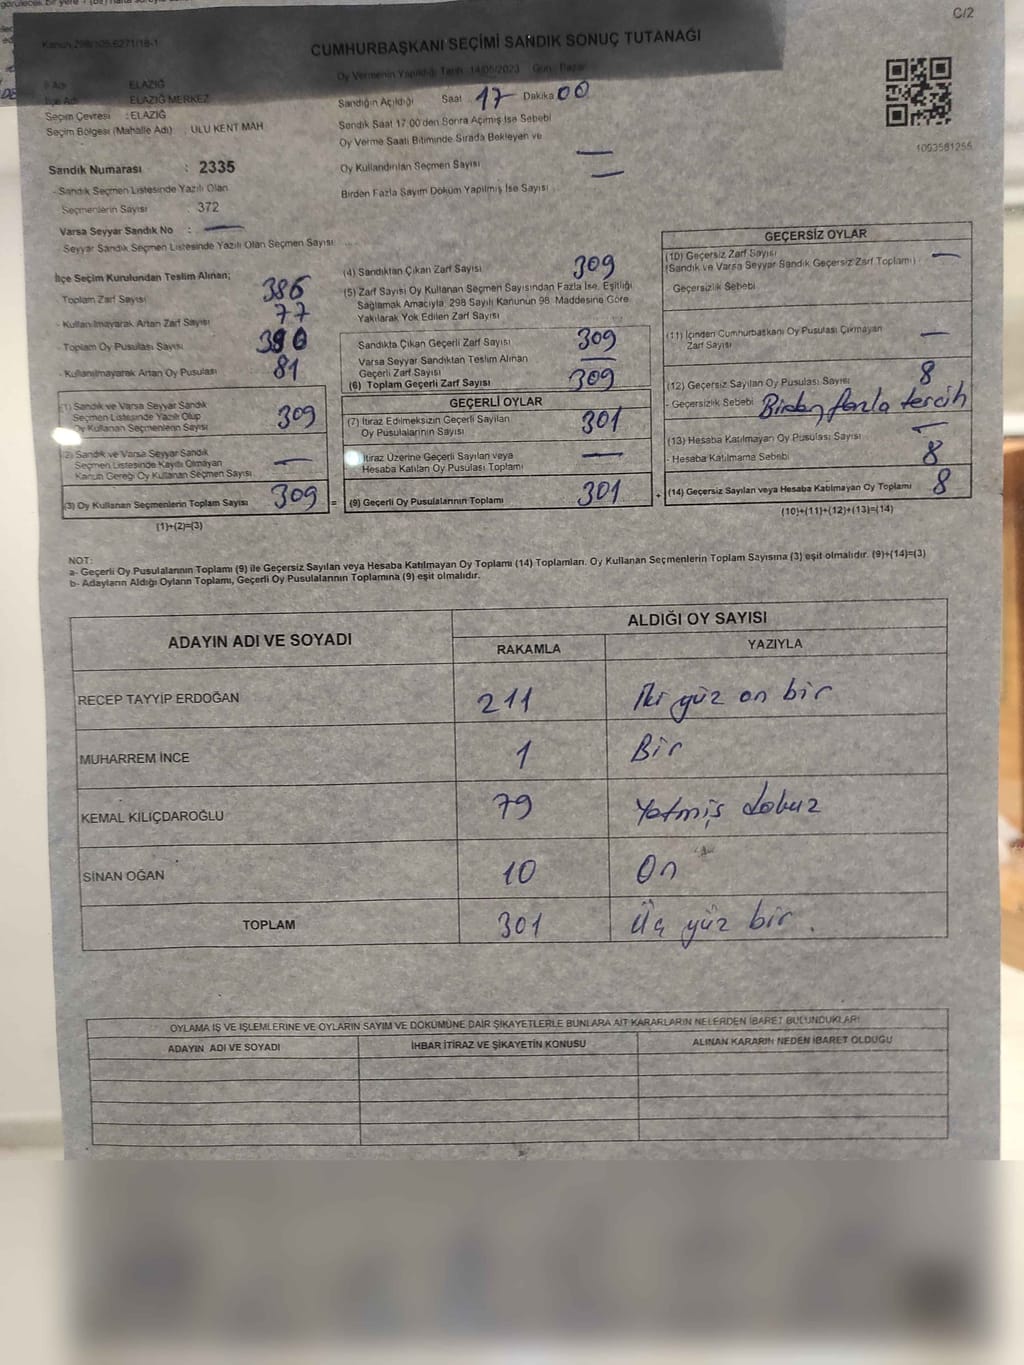 C/2
Kanun 298/105.6271/18-1
CUMHURBAŞKANI SEÇİMİ SANDIK SONUÇ TUTANAĞI
Oy Vermenin Yapıldığı Tarih : 14/05/2023 Gün : Pazar
İl Adı ELAZIĞ
İlçe Adı ELAZIĞ MERKEZ
Seçim Çevresi : ELAZIĞ
Seçim Bölgesi (Mahalle Adı) : ULU KENT MAH
Sandığın Açıldığı Saat 17 Dakika 00
Sandık Saat 17.00'den Sonra Açılmış İse Sebebi
Oy Verme Saati Bitiminde Sırada Bekleyen ve
Oy Kullandırılan Seçmen Sayısı —
Birden Fazla Sayım Döküm Yapılmış İse Sayısı —
1093581255
Sandık Numarası : 2335
- Sandık Seçmen Listesinde Yazılı Olan
Seçmenlerin Sayısı : 372
Varsa Seyyar Sandık No : —
- Seyyar Sandık Seçmen Listesinde Yazılı Olan Seçmen Sayısı
İlçe Seçim Kurulundan Teslim Alınan;
- Toplam Zarf Sayısı 386
- Kullanılmayarak Artan Zarf Sayısı 77
- Toplam Oy Pusulası Sayısı 390
- Kullanılmayarak Artan Oy Pusulası 81
(1) Sandık ve Varsa Seyyar Sandık
Seçmen Listesinde Yazılı Olup
Oy Kullanan Seçmenlerin Sayısı 309
(2) Sandık ve Varsa Seyyar Sandık
Seçmen Listesinde Kayıtlı Olmayan
Kanun Gereği Oy Kullanan Seçmen Sayısı —
(3) Oy Kullanan Seçmenlerin Toplam Sayısı 309 =
(1)+(2)=(3)
(4) Sandıktan Çıkan Zarf Sayısı 309
(5) Zarf Sayısı Oy Kullanan Seçmen Sayısından Fazla İse, Eşitliği
Sağlamak Amacıyla, 298 Sayılı Kanunun 98. Maddesine Göre
Yakılarak Yok Edilen Zarf Sayısı
Sandıkta Çıkan Geçerli Zarf Sayısı 309
Varsa Seyyar Sandıktan Teslim Alınan
Geçerli Zarf Sayısı —
(6) Toplam Geçerli Zarf Sayısı 309
GEÇERLİ OYLAR
(7) İtiraz Edilmeksizin Geçerli Sayılan
Oy Pusulalarının Sayısı 301
İtiraz Üzerine Geçerli Sayılan veya
Hesaba Katılan Oy Pusulası Toplamı —
(9) Geçerli Oy Pusulalarının Toplamı 301 +
GEÇERSİZ OYLAR
(10) Geçersiz Zarf Sayısı
(Sandık ve Varsa Seyyar Sandık Geçersiz Zarf Toplamı) —
Geçersizlik Sebebi
(11) İçinden Cumhurbaşkanı Oy Pusulası Çıkmayan
Zarf Sayısı —
(12) Geçersiz Sayılan Oy Pusulası Sayısı 8
- Geçersizlik Sebebi Birden fazla tercih
(13) Hesaba Katılmayan Oy Pusulası Sayısı —
- Hesaba Katılmama Sebebi 8
(14) Geçersiz Sayılan veya Hesaba Katılmayan Oy Toplamı 8
(10)+(11)+(12)+(13)=(14)
NOT:
a- Geçerli Oy Pusulalarının Toplamı (9) ile Geçersiz Sayılan veya Hesaba Katılmayan Oy Toplamı (14) Toplamları, Oy Kullanan Seçmenlerin Toplam Sayısına (3) eşit olmalıdır. (9)+(14)=(3)
b- Adayların Aldığı Oyların Toplamı, Geçerli Oy Pusulalarının Toplamına (9) eşit olmalıdır.
ADAYIN ADI VE SOYADI
ALDIĞI OY SAYISI
RAKAMLA YAZIYLA
RECEP TAYYİP ERDOĞAN 211 İki yüz on bir
MUHARREM İNCE 1 Bir
KEMAL KILIÇDAROĞLU 79 Yetmiş dokuz
SİNAN OĞAN 10 On
TOPLAM 301 Üç yüz bir.
OYLAMA İŞ VE İŞLEMLERİNE VE OYLARIN SAYIM VE DÖKÜMÜNE DAİR ŞİKAYETLERLE BUNLARA AİT KARARLARIN NELERDEN İBARET BULUNDUKLARI
ADAYIN ADI VE SOYADI İHBAR İTİRAZ VE ŞİKAYETİN KONUSU ALINAN KARARIN NEDEN İBARET OLDUĞU